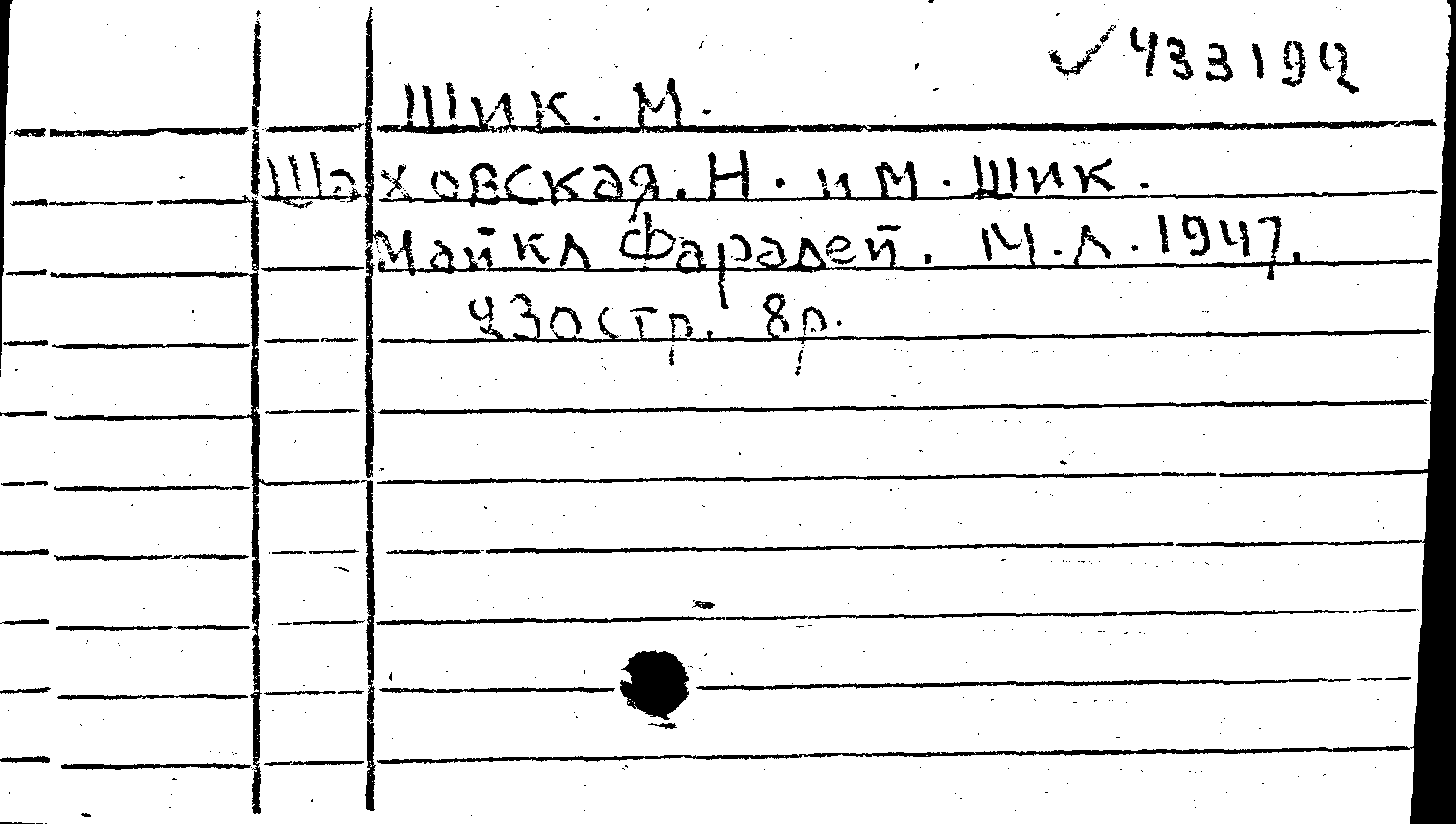 ✓ 433192
Шик. М.
Шаховская. Н. и М. Шик.
Майкл Фарадей. М.Л. 1947.
230стр. 8р.